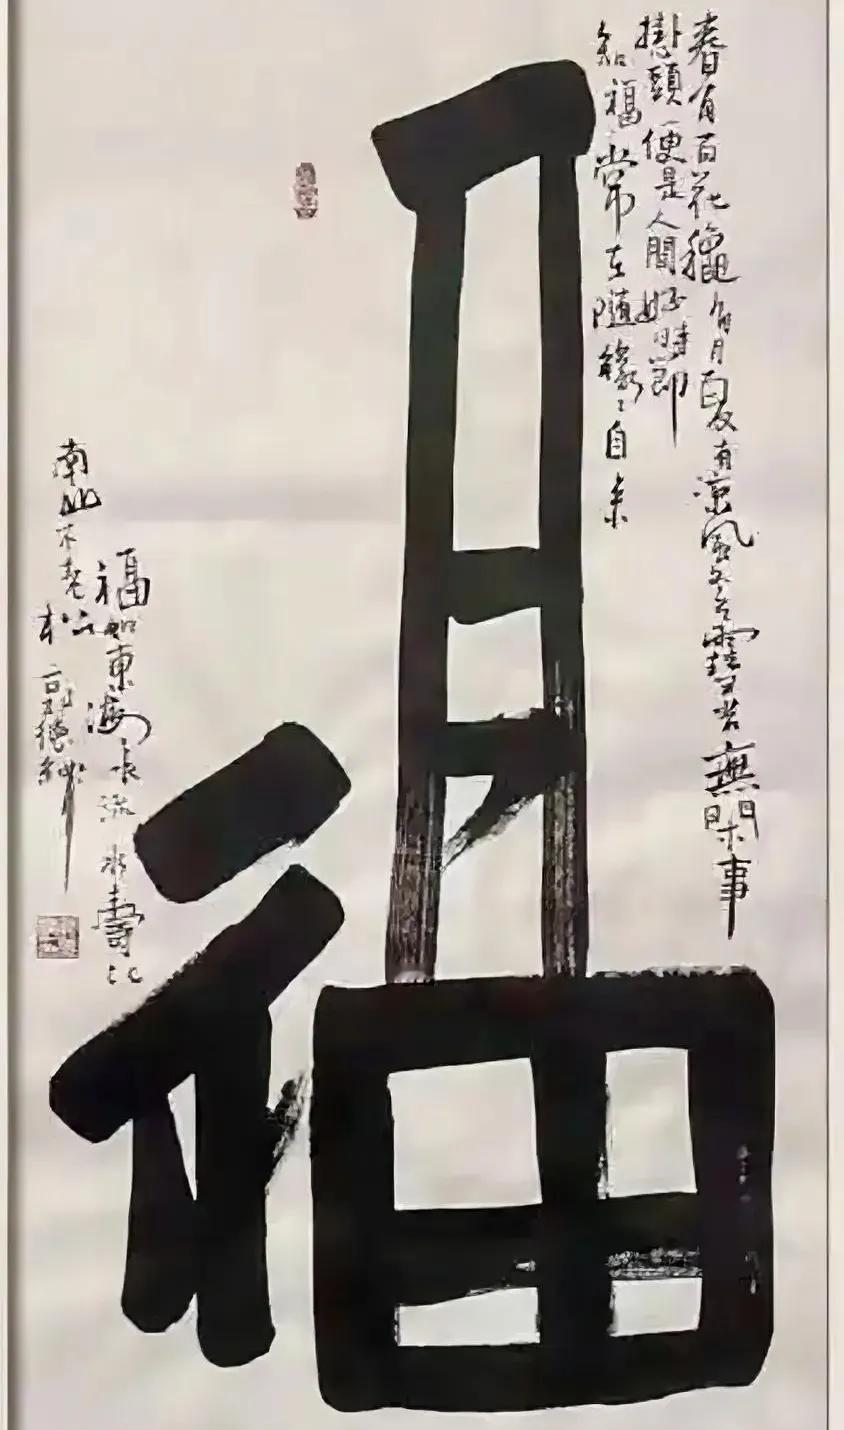 春有百花龝有月夏有凉風冬有雪若無閑事
掛心頭便是人間好時節
知福常在隨緣〻自来
福
福如東海長流水壽比
南山不老松 郭德綱